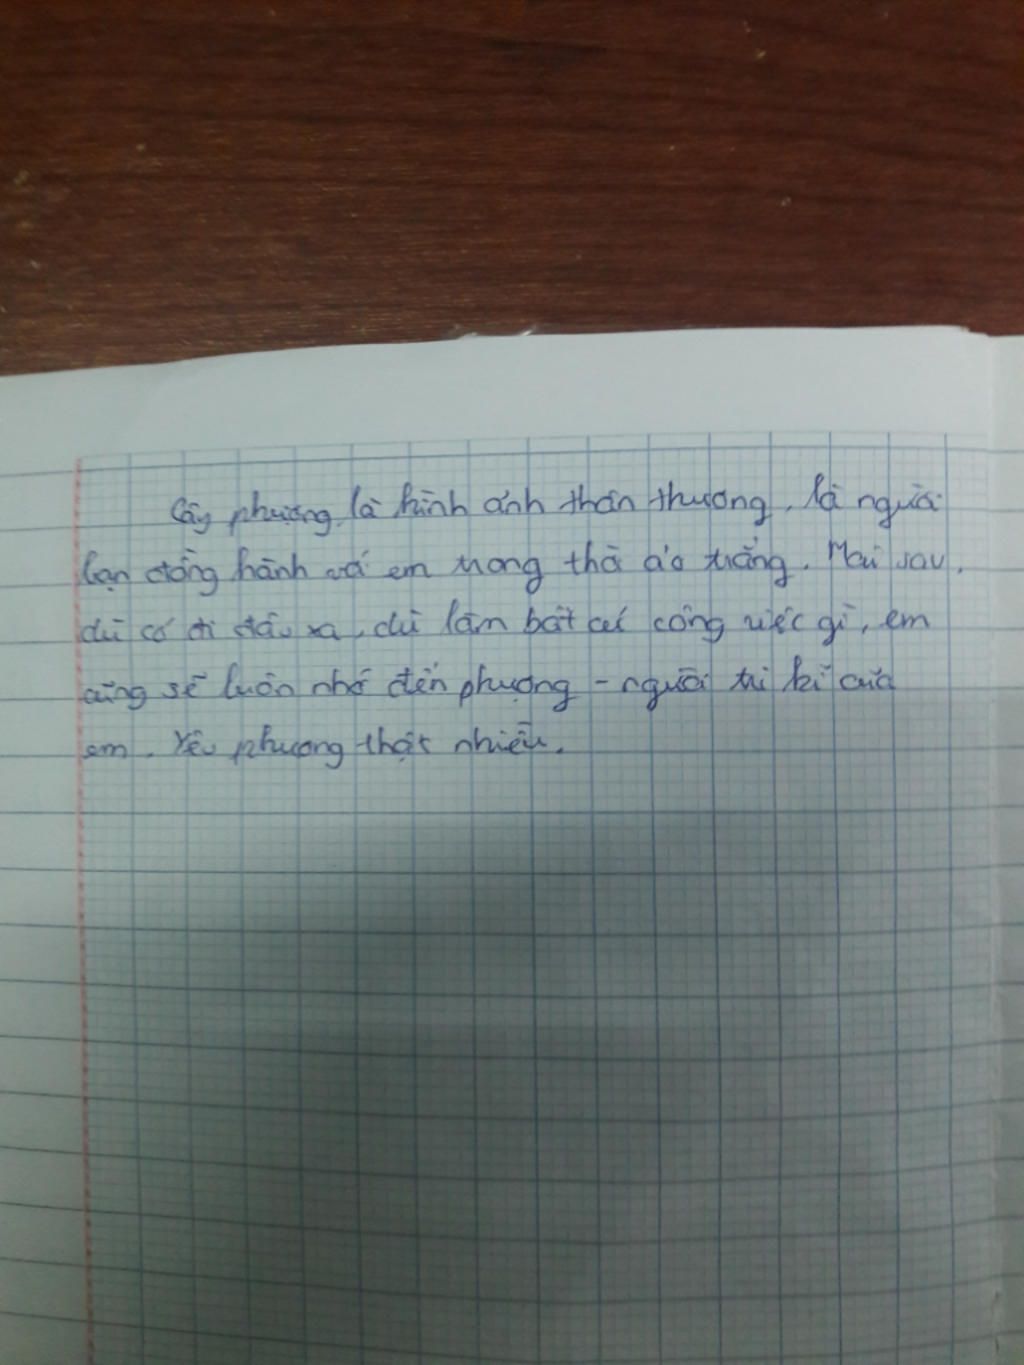 Cây phượng là hình ảnh thân thương, là người
bạn đồng hành với em trong thời áo trắng. Mai sau,
dù có đi đâu xa, dù làm bất cứ công việc gì, em
cũng sẽ luôn nhớ đến phượng - người tri kỉ của
em. Yêu phượng thật nhiều.